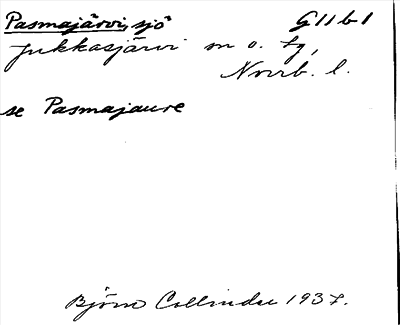 Pasmajärvi, sjö G11b1
Jukkasjärvi sn o. tg,
Norrb. l.
se Pasmajaure
Björn Collinder 1937.